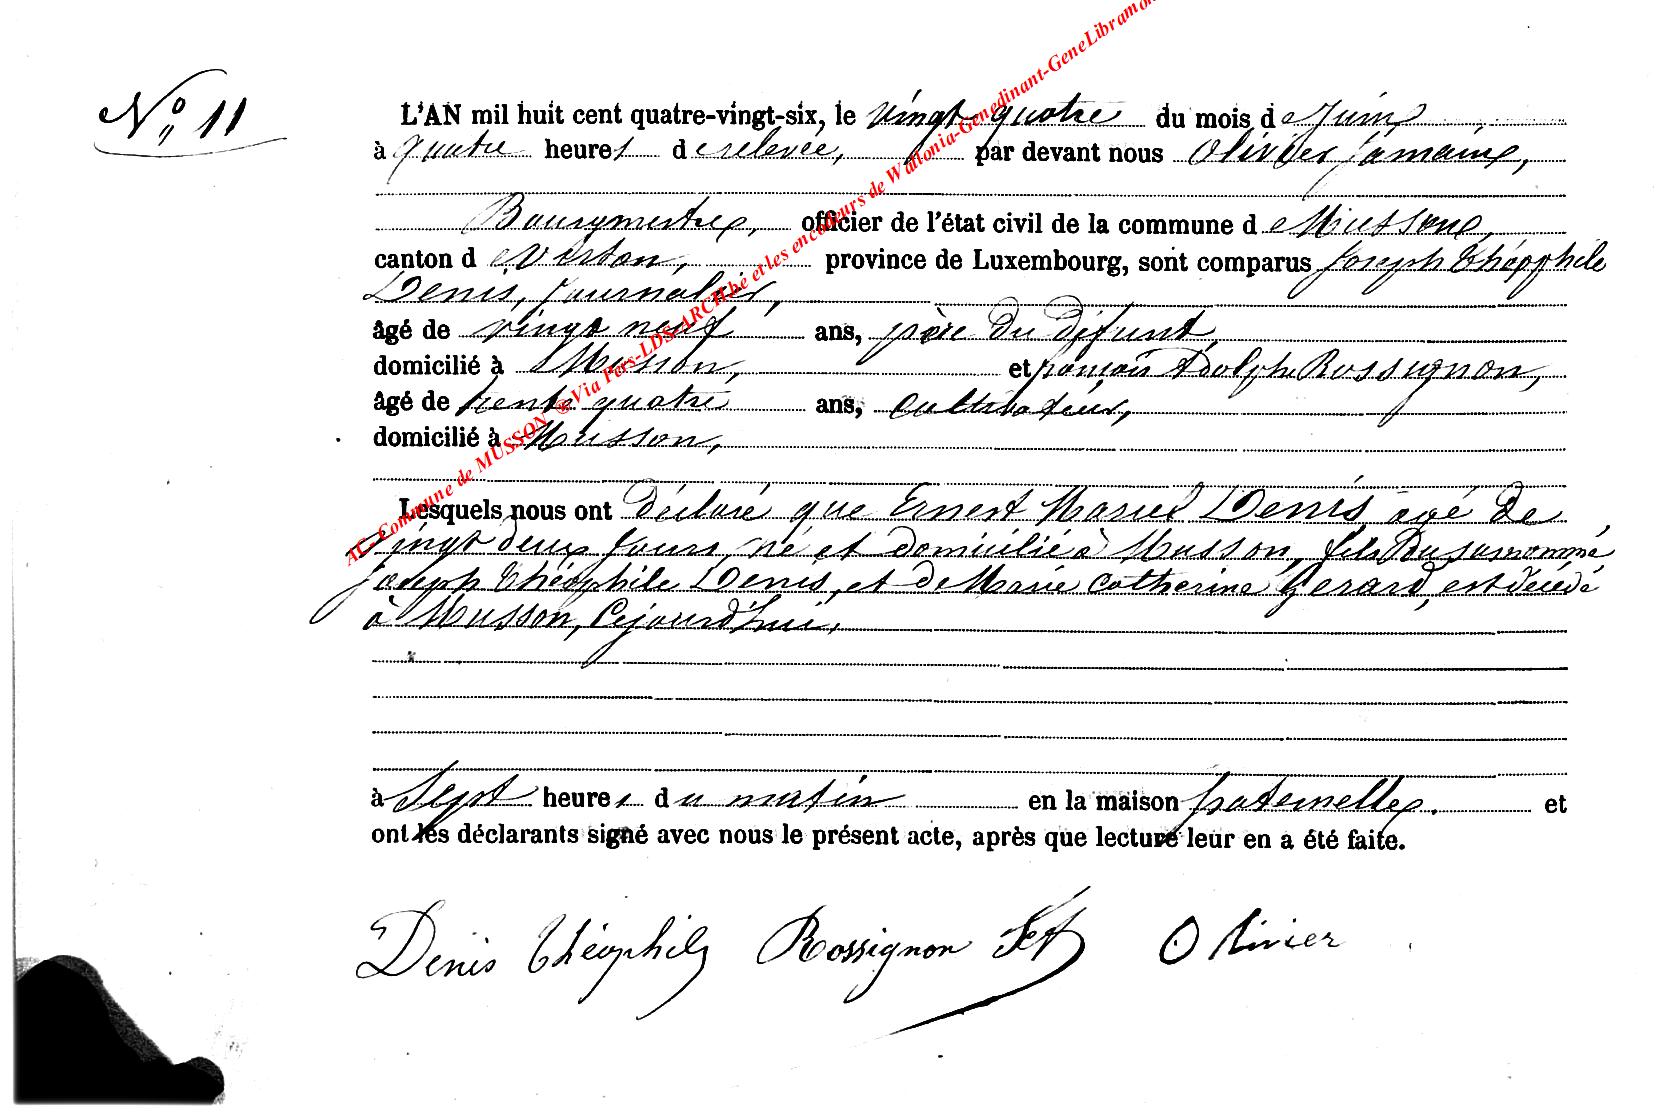 N° 11
L'AN mil huit cent quatre-vingt-six, le vingt quatre du mois de Juin,
à quatre heures de relevée, par devant nous Olivier Jamaux,
Bourgmestre, officier de l'état civil de la commune de Musson,
canton de Virton, province de Luxembourg, sont comparus Joseph Théophile
Denis, Journalier,
âgé de vingt neuf ans, père du défunt,
domicilié à Musson, et Adolphe Rossignon,
âgé de trente quatre ans, cultivateur,
domicilié à Musson,
Lesquels nous ont déclaré que Ernest Marcel Denis, agé de
vingt deux jours, né et domicilié à Musson, fils du surnommé
Joseph Théophile Denis, et de Marie Catherine Gerard, est décédé
à Musson, cejourd'hui,
à sept heures du matin en la maison paternelle. et
ont les déclarants signé avec nous le présent acte, après que lecture leur en a été faite.
Denis Théophile Rossignon Olivier
AC. Commune de MUSSON ® Via Pers-LDS-ARCH.be et les encodeurs de Wallonia-Genedinant-GeneLibramon